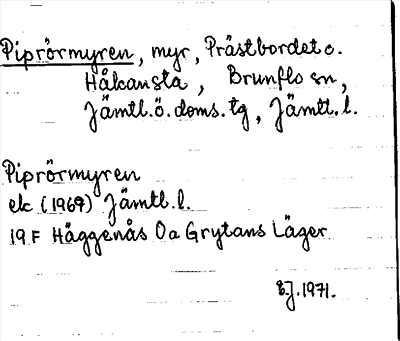 Piprörmyren, myr, Prästbordet o.
Håkansta, Brunflo sn,
Jämtl.ö.doms.tg, Jämtl.l.
Piprörmyren
ek (1969) Jämtl.l.
19 F Häggenås Oa Grytans Läger
1971.